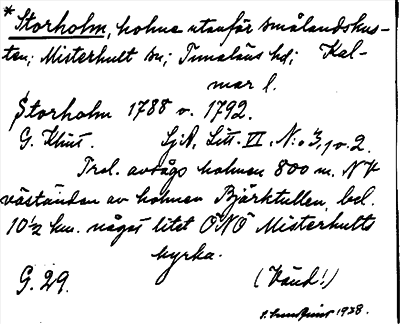 * Storholm, holme utanför smålandskus-
ten; Misterhult sn; Tunaläns hd; Kal-
mar l.
Storholm 1788 o. 1792.
G. Khist. SjA, Litt. VI, N:o 3, 1 o. 2.
Trol. avsågs holmen 800 m. NV
väständen av holmen Björktullen, bel.
10½ km. något litet ONO Misterhults
kyrka.
G. 29. (Vänd!)
1938.